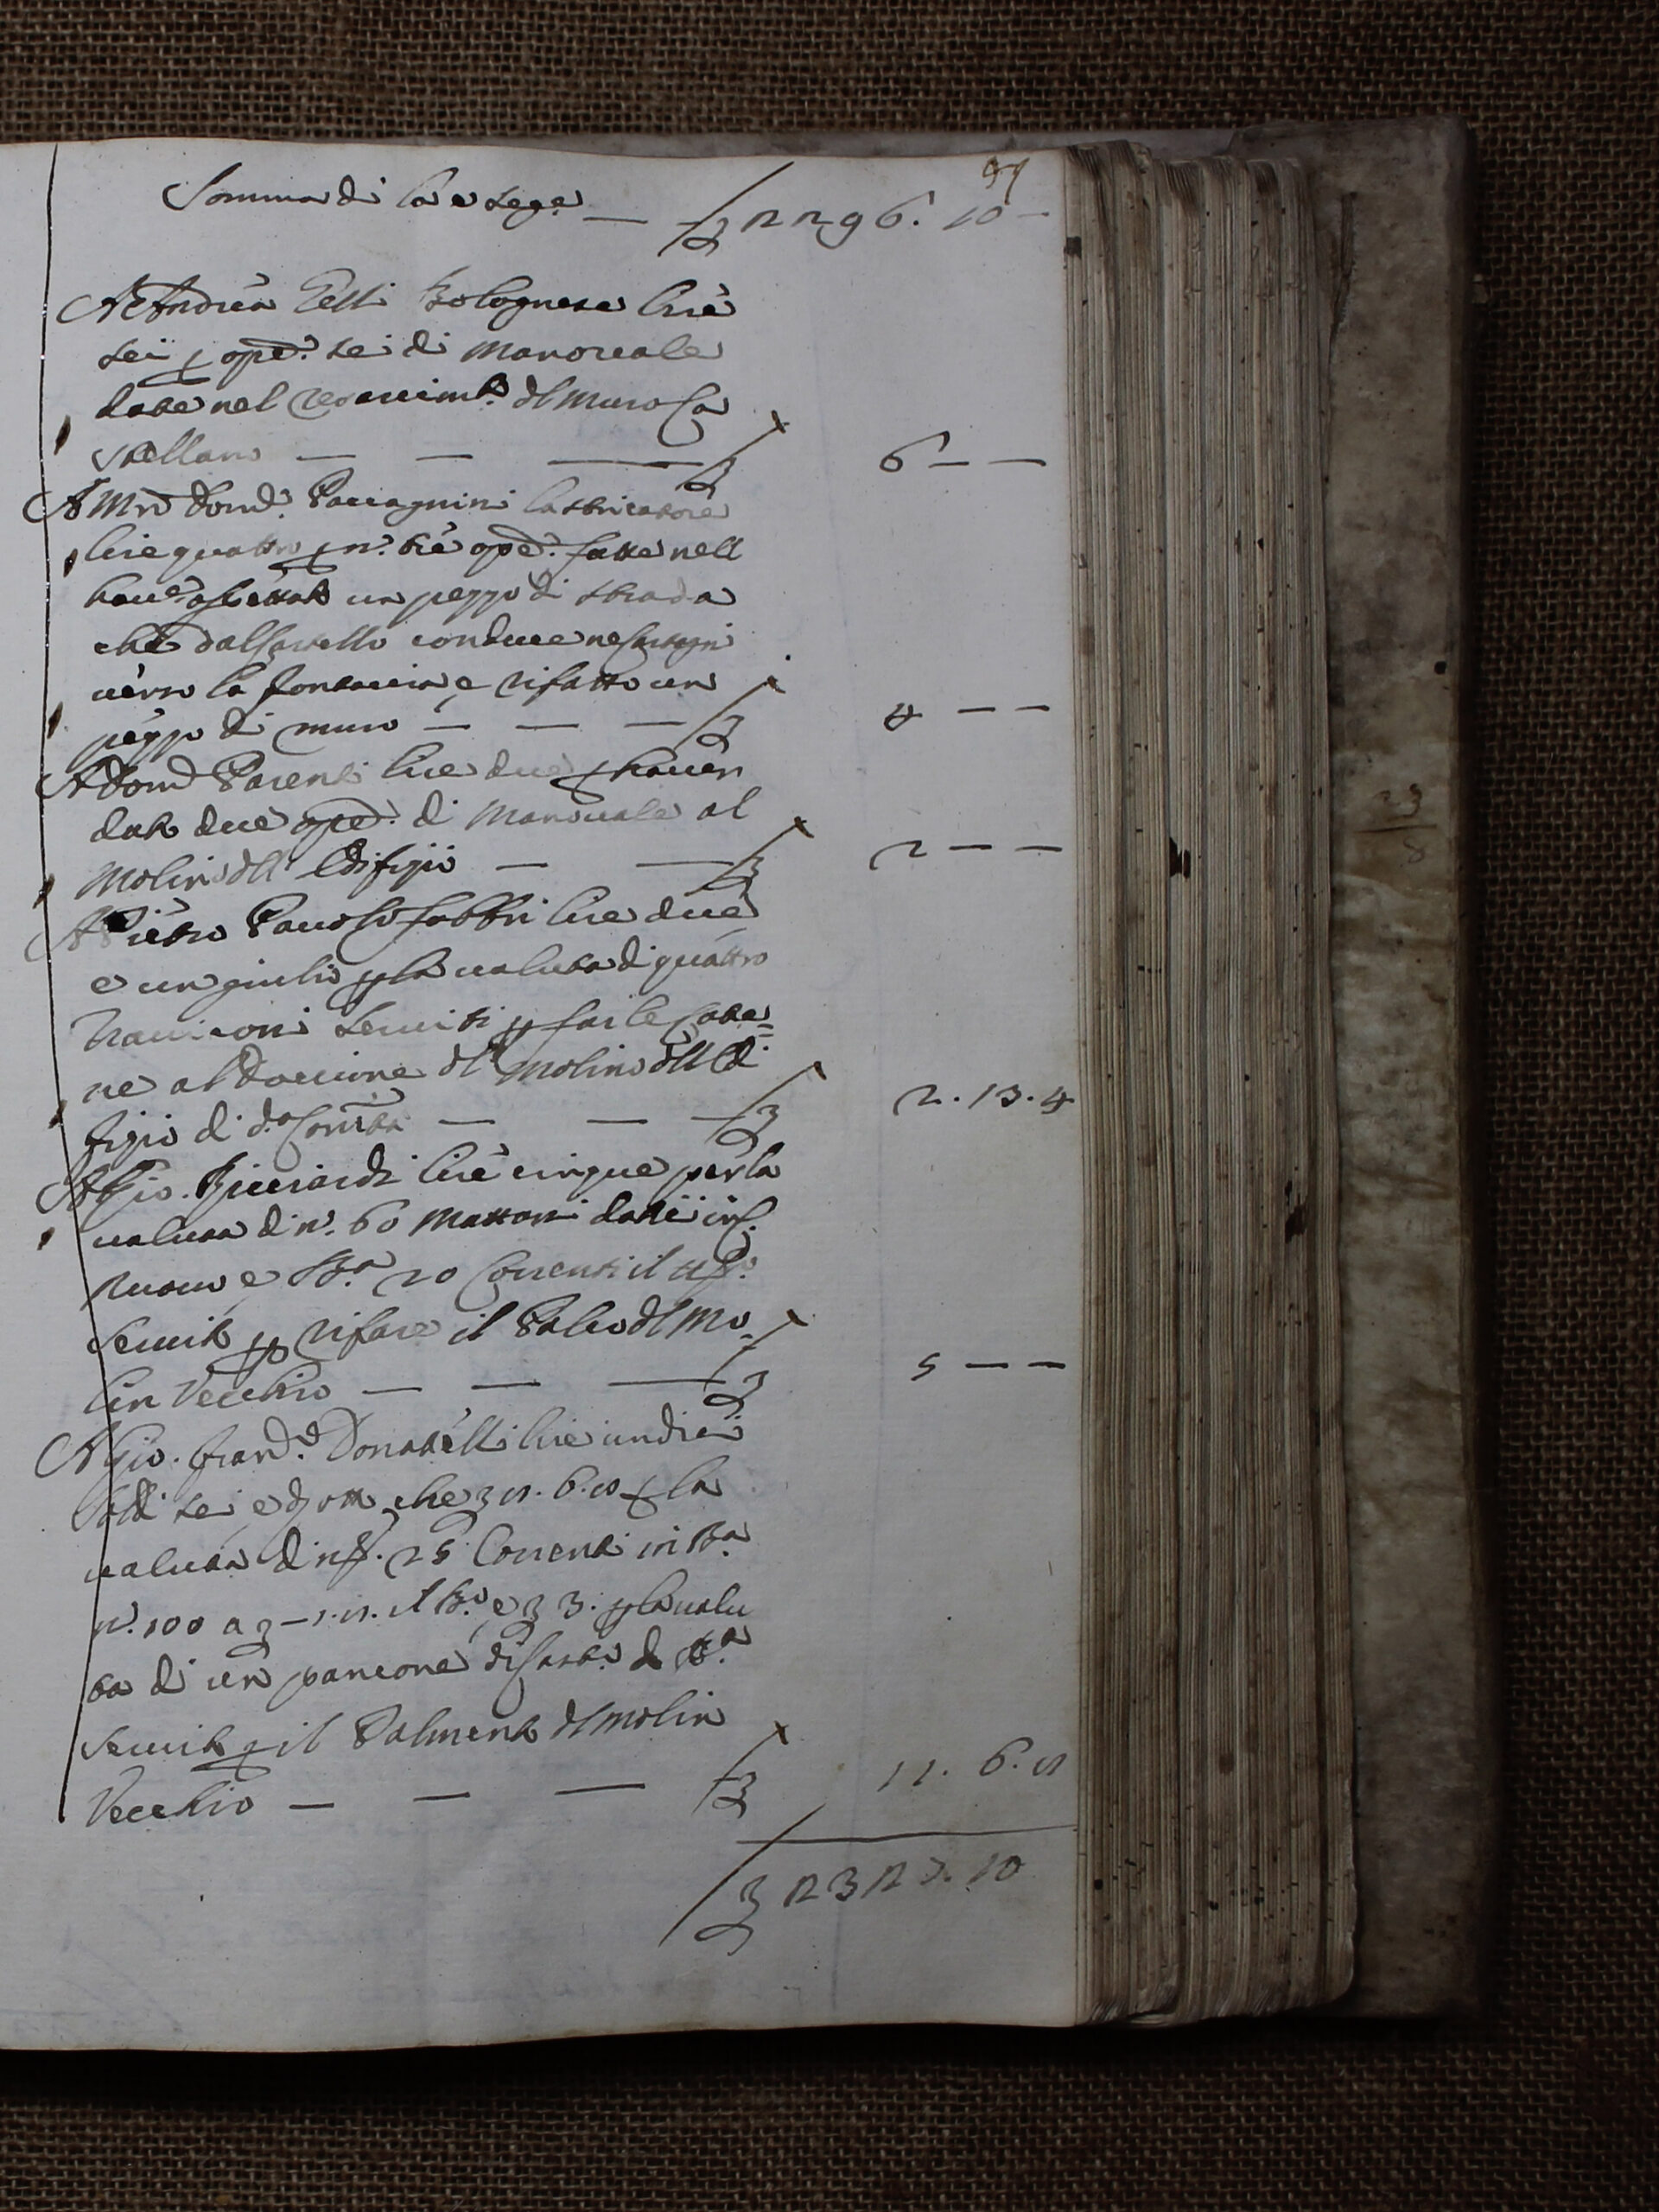 97
Somma di là e segue — £ 2296. 10 –
A Andrea Telli Bolognese lire
sei p ope.e sei di Manovale
date nel rdl Muro Ca
stellano — — — £ 6 — —
A Mro Domco Paccagnini
lire quattro p n.o tre ope.e fatte nell
haver un pezzo di strada
che dal Castello conduce ne Castagni
verso la fontaccia, e rifatto un
pezzo di muro — — — £ 4 — —
A Domco Parenti lire due p haver
dato due ope.e di Manovale al
Molino dll Edifizio — — £ 2 — —
A Pietro Paolo fabbri lire due
e un giulio p la valuta di quattro
serviti p far le Cate=
ne al Doccione dl Molino dll Edi
fizio di da Comtà — — — £ 2. 13. 4
A Gio. Ricciardi lire cinque per la
valuta di n.o 60 Mattoni dati
e Ba 20 Correnti il
Servito p rifare il Palco dl Mo-
lin Vecchio — — — £ 5 — —
A Gio. Franco Donatelli lire undici
soldi sei e d otto che £ 11. 6. 8 p la
valuta di n.o 25 Correnti in Ba
n.o 100 a £ – 1. 8. il Bo, e £ 3. p la valu
ta di un pancone di Casto di
Servito p il Palmento dl Molin
Vecchio — — — £ 11. 6. 8
£ 2327. 10